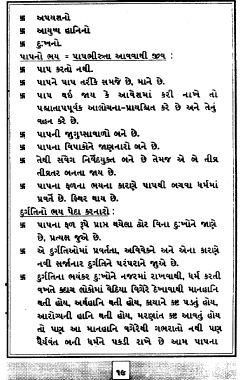 卐 અપયશનો
卐 આયુષ્ય હાનિનો
卐 દુઃખનો.
પાપનો ભય = પાપભીરુતા આવવાથી જીવ :
卐 પાપ કરતો નથી.
卐 પાપને પાપ તરીકે સમજે છે, માને છે.
卐 પાપ થઈ જાય કે આવેશમાં કરી નાખે તો પશ્ચાતાપપૂર્વક આલોચના-પ્રાયશ્ચિત કરે છે અને તેનું વહન કરે છે.
卐 પાપની જુગુપ્સાવાળો બને છે.
卐 પાપના વિપાકોને જાણનારો બને છે.
卐 તેથી સંવેગ નિર્વેદયુક્ત બને છે તેમજ એ બે તીવ્ર તીવ્રતર બનતા જાય છે.
卐 પાપના ફળના ભયના કારણે પાપથી બચવા ધર્મમાં પ્રવર્તે છે. સ્થિર થાય છે.
દુર્ગતિનો ભય પેદા કરનારો :
卐 પાપના ફળ રૂપે પ્રાપ્ત થયેલા ઢોર વિના દુઃખોને જાણે છે, પ્રત્યક્ષ જુએ છે.
卐 એ દુર્ગતિઓમાં પ્રવર્તતા, અવિવેકને અને એના કારણે નવી સર્જાનાર દુર્ગતિને પરંપરાને જાુએ છે.
卐 દુર્ગતિના ભયંકર દુઃખોને નજરમાં રાખવાથી, ધર્મ કરતી વખતે કદાચ લોકોમાં વેદિયા વિગેરે દેખાવાથી માનહાનિ થતી હોય, અર્થહાનિ થતી હોય, કાયાને કષ્ટ પડતું હોય, આરોગ્યની હાનિ થતી હોય, મરણાંત કષ્ટ આવતું હોય તો પણ આ માનહાનિ વગેરેથી ગભરાતો નથી પણ ધૈર્યવંત બની ધર્મને પકડી રાખે છે આમ પાપના
૧૯